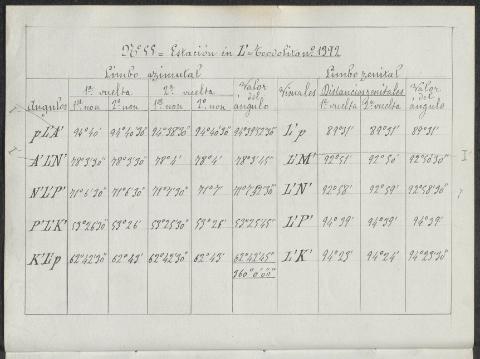 Nº 55 = Estación en L' = Teodolito nº 1392
Limbo azimutal Limbo zenital
1ª vuelta 2ª vuelta Valor del ángulo Visuales Distancias zenitales Valor del ángulo
Angulos 1er non 2º non 1er non 2º non 1ª vuelta 2ª vuelta
pL'A' 94°40' 94°40'30" 94°38'30" 94°40'30" L'p 89°31' 89°31' 89°31'
A'L'N' 78°3'30" 78°3'30" 78°4' 78°4' 78°3'45" L'M' 92°51' 92°50' 92°50'30"
N'L'P' 71°6'30" 71°6'30" 71°7'30" 71°7' L'N' 92°58' 92°59' 92°58'30"
P'L'K' 53°26'30" 53°26' 53°25'30" 53°25'45" L'P' 94°39' 94°39' 94°39'
K'L'p 62°42'30" 62°43' 62°42'30" 62°43' 62°42'45" L'K' 94°23' 94°24' 94°23'30"
360°0'00"